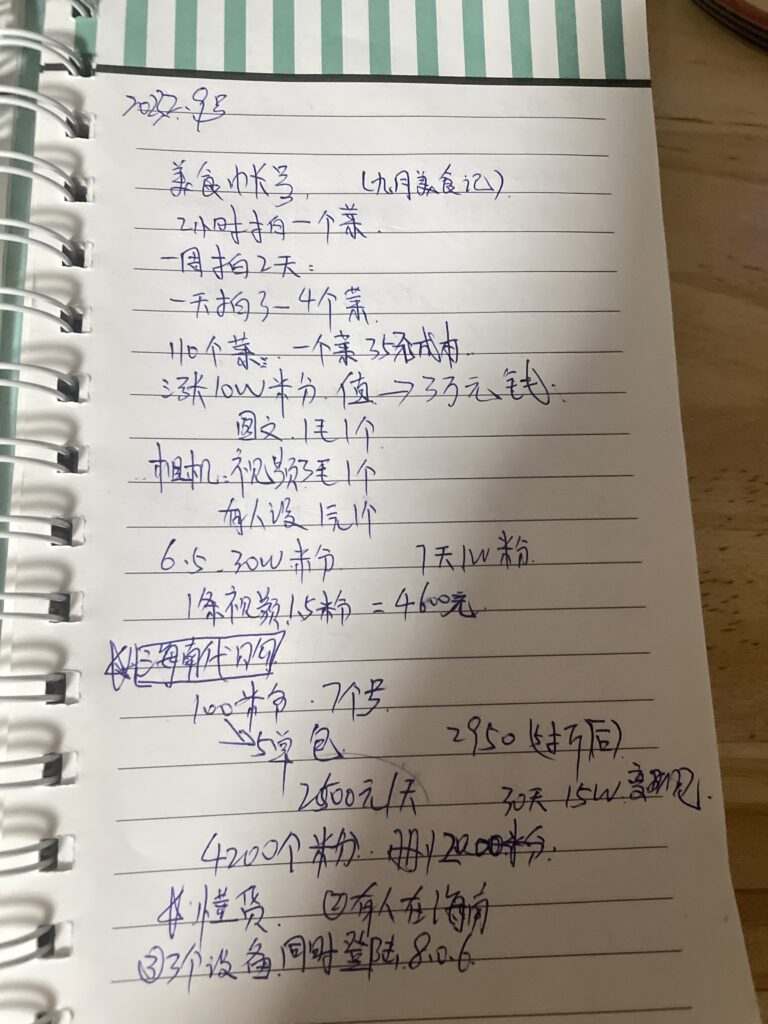 2022.9号
美食帐号, (九月美食记)
2小时拍一个菜.
一周拍2天:
一天拍3-4个菜.
110个菜: 一个菜35元成本.
涨10W粉 值→3万元钱.
图文 1毛1个
相机:视频3毛1个
有人设1元1个
6.5-30W粉 7天1W粉
1条视频1.5粉=4600元
海南代购
100粉 7个号
5单包 2950(打折后)
2500元1天 30天15W变现.
4200个粉 2000粉
懂货 ②有人在海南
③3个设备同时登陆 8.0.6